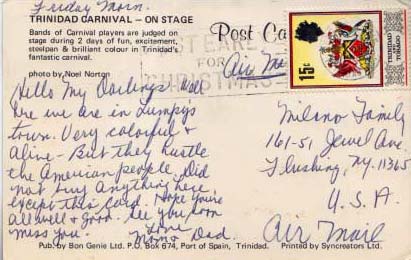 Friday Morn.
TRINIDAD CARNIVAL – ON STAGE
Bands of Carnival players are judged on
stage during 2 days of fun, excitement,
steelpan & brilliant colour in Trinidad's
fantastic carnival.
photo by Noel Norton
Hello My Darlings Well
here we are in Lumpy's
town. Very colorful &
alive - But they hustle
the American people. Did
not buy anything here
except this card. Hope you're
all well & good. See you soon
miss you. Love
Mom & Dad.
Post Ca
FOR
CHRISTMAS
Air Mail
15c
TRINIDAD AND TOBAGO
Milano Family
161-51 Jewel Ave
Flushing, NY. 11365
U.S.A.
Air Mail
Pub. by Bon Genie Ltd. P.O. Box 674, Port of Spain, Trinidad.
Printed by Syncreators Ltd.